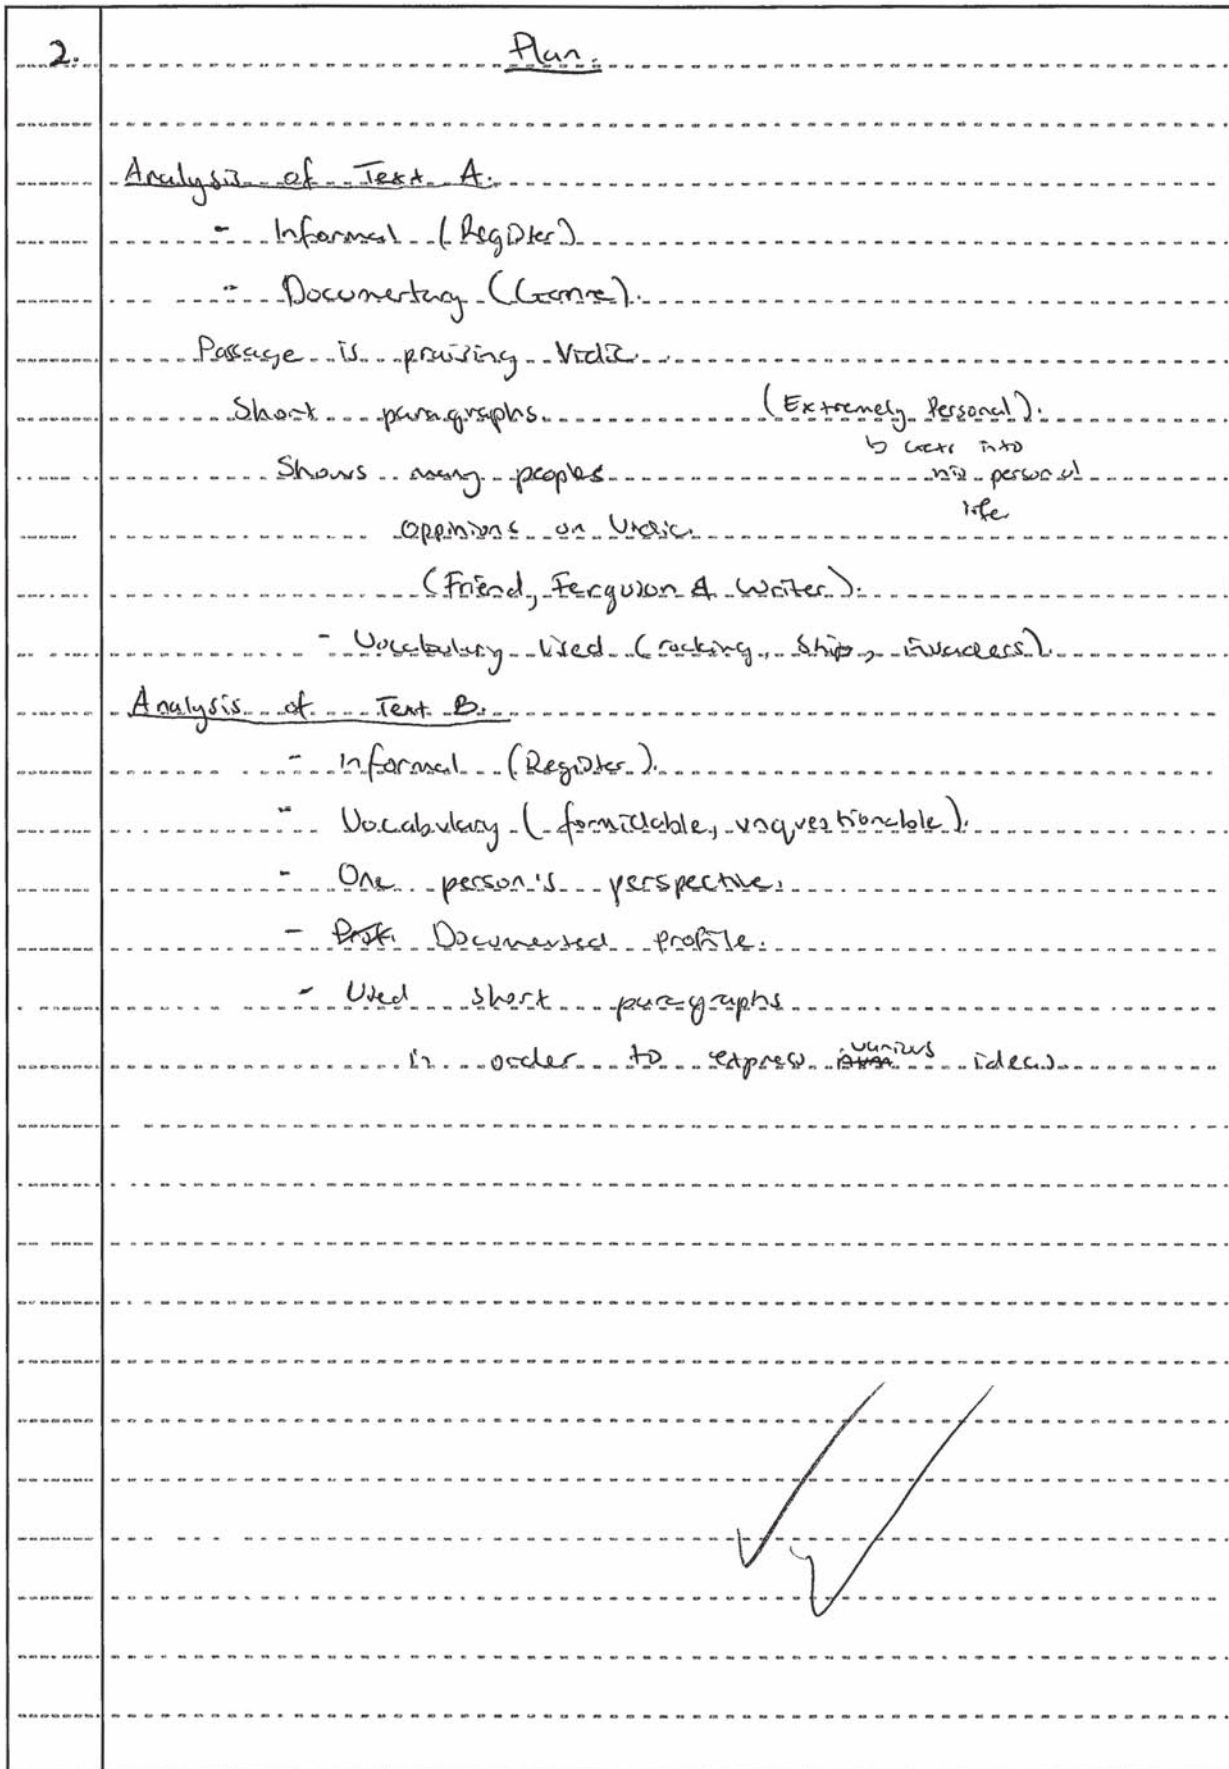 2. Plan.
Analysis of Text A.
- Informal (Register)
- Documentary (Genre).
Passage is praising Vidic.
Short paragraphs. (Extremely Personal).
↳ into
Shows many peoples his personal
life
oppinions on Vidic.
(Friend, Ferguson & Writer).
- Vocabulary Used (rocking, ship, invaders).
Analysis of Text B.
- Informal (Register).
- Vocabulary (formidable, unquestionable).
- One person's perspective.
- Documented profile.
- Used short paragraphs
in order to express various ideas.